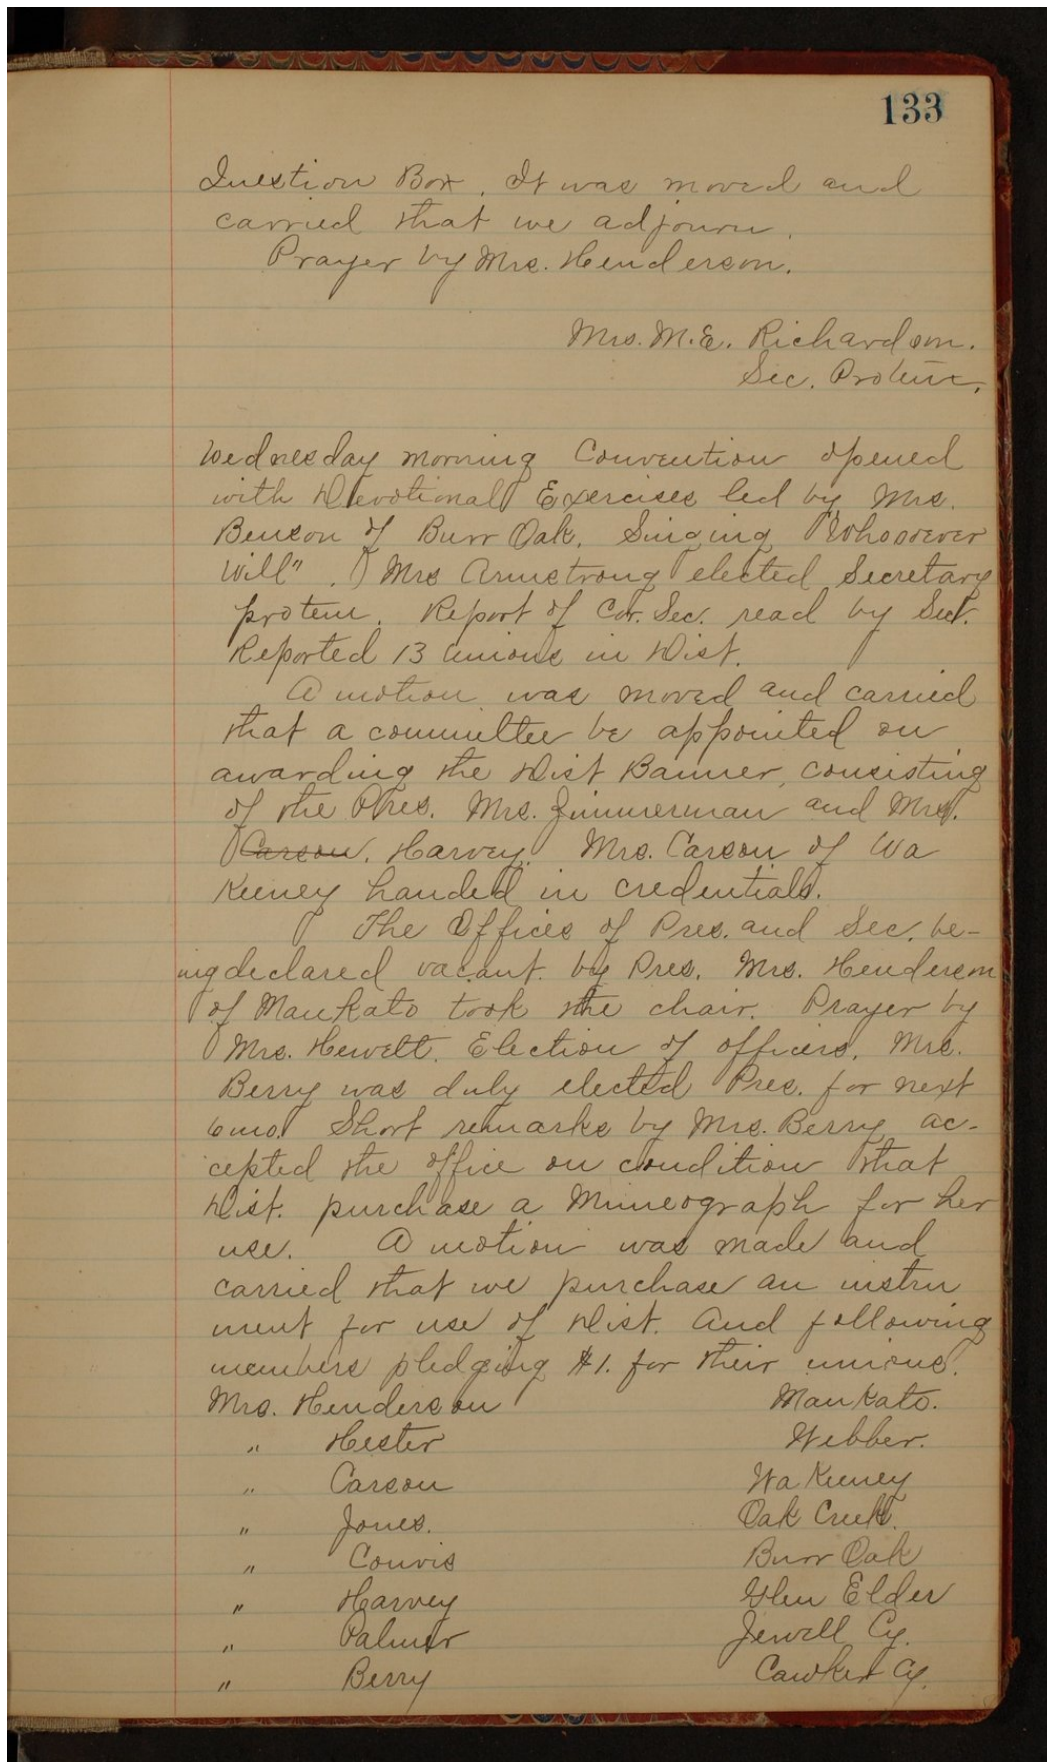 133
Question Box. It was moved and
carried that we adjourn.
Prayer by Mrs. Henderson.
Mrs. M.E. Richardson.
Sec. Protem.
Wednesday morning Convention opened
with Devotional Exercises led by Mrs.
Benson of Burr Oak. Singing "Whosoever
Will". Mrs Armstrong elected Secretary
protem. Report of Cor. Sec. read by Sect.
Reported 13 Unions in Dist.
A motion was moved and carried
that a committee be appointed on
awarding the Dist Banner, consisting
of the Pres. Mrs. Zimmerman and Mrs.
Carson. Harvey. Mrs. Carson of Wa
Keeney handed in credentials.
The Offices of Pres. and Sec. be-
ing declared vacant by Pres. Mrs. Henderson
of Mankato took the chair. Prayer by
Mrs. Hewett. Election of officers. Mrs.
Berry was duly elected Pres. for next
6 mo. Short remarks by Mrs. Berry ac-
cepted the office on condition that
Dist. purchase a Mimeograph for her
use. A motion was made and
carried that we purchase an instru
ment for use of Dist. And following
members pledging $1. for their unions.
Mrs. Henderson Mankato.
" Hester Webber.
" Carson Wa Keeney
" Jones. Oak Creek.
" Couvis Burr Oak
" Harvey Glen Elder
" Palmer Jewell Cy.
" Berry Cawker Cy.